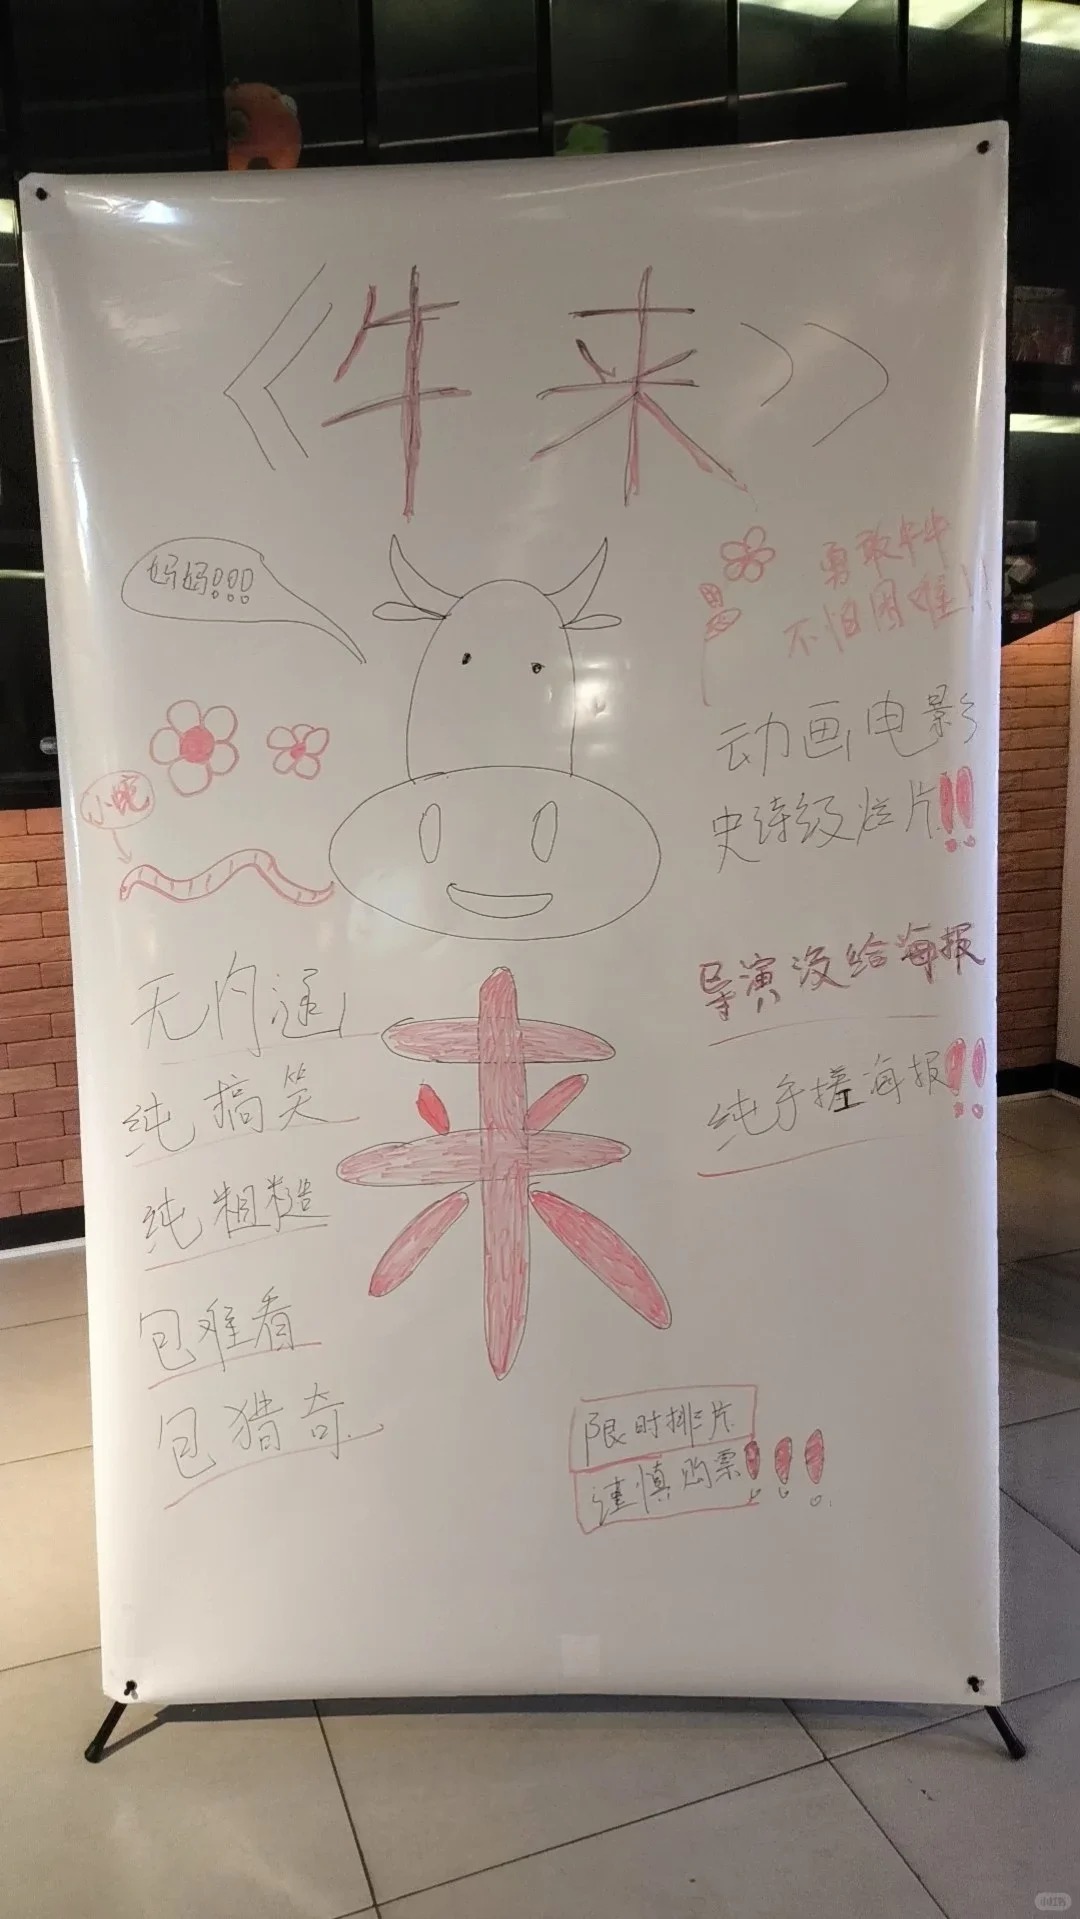 《牛来》
妈妈!!!
勇敢牛牛
不怕困难!!
动画电影
史诗级烂片!!
小蜿
来
无内涵
纯搞笑
纯粗糙
包难看
包猎奇
导演没给海报
纯手搓海报!!
限时排片
谨慎购票!!!
小红书